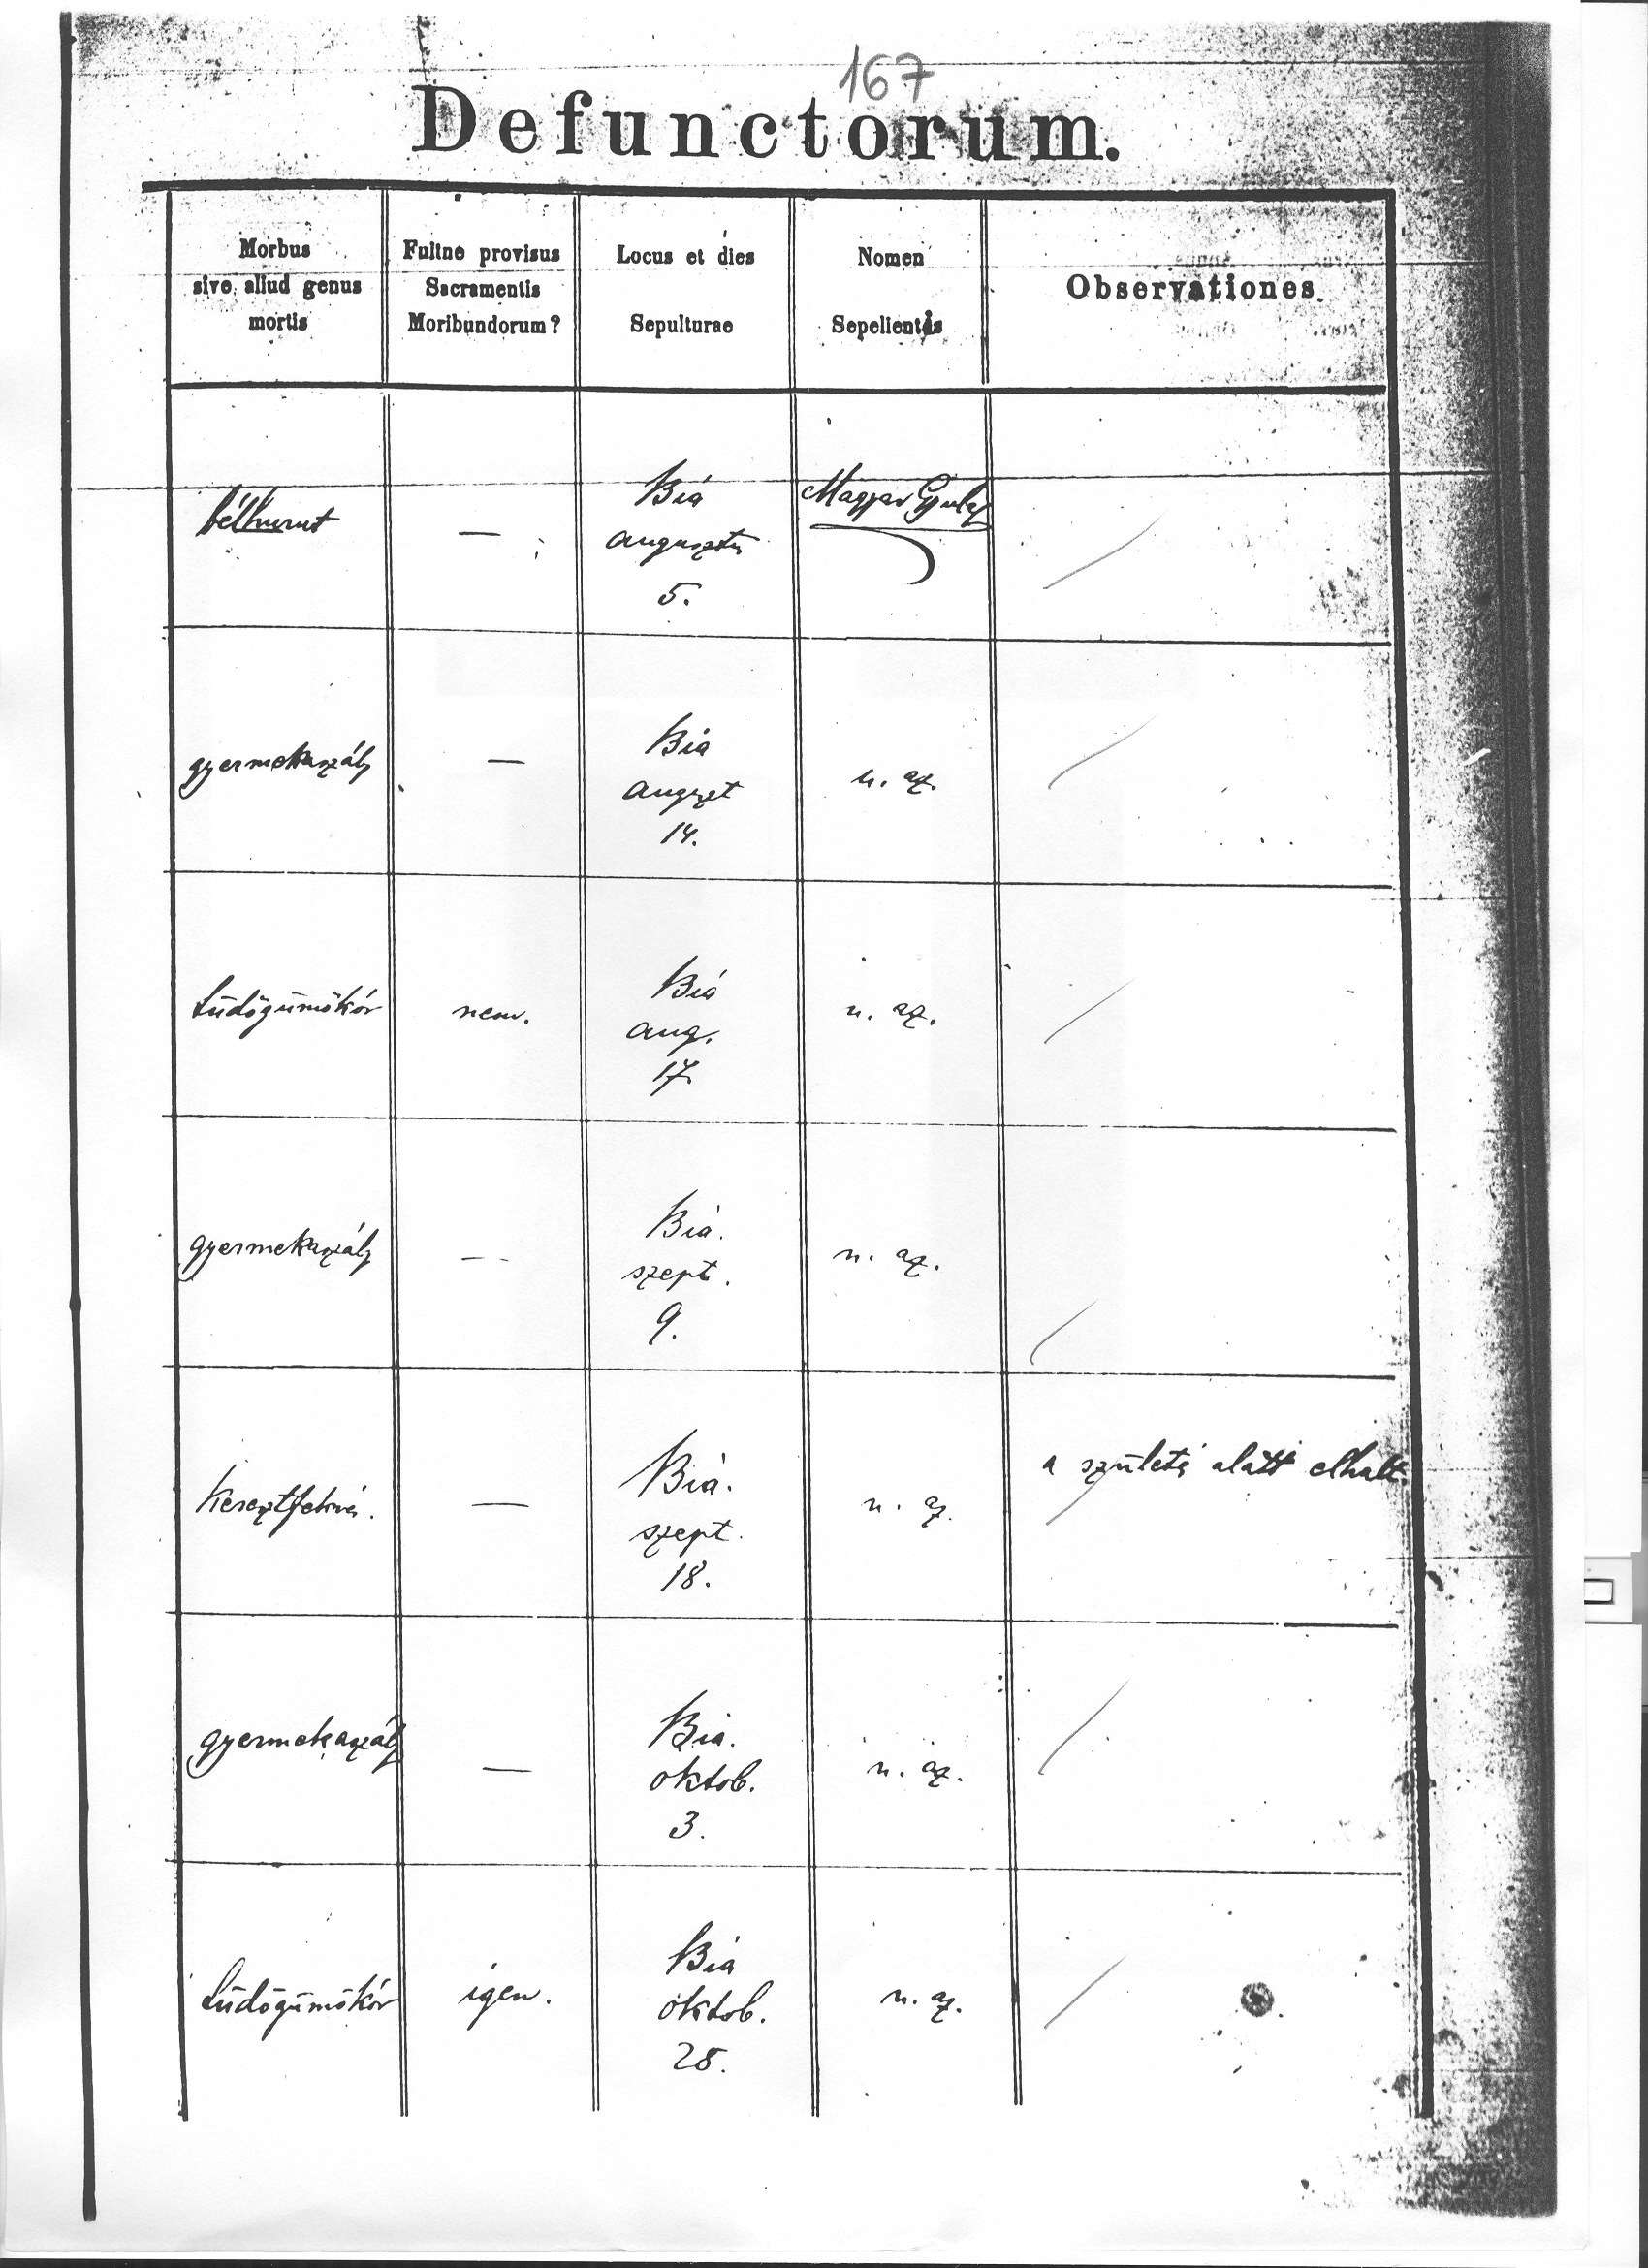 167
Defunctorum.
Morbus
sive aliud genus
mortis
Fuitne provisus
Sacramentis
Moribundorum?
Locus et dies
Sepulturae
Nomen
Sepelientis
Observationes.
bélhurut
—
Bia
augusztus
5.
Magyar Gyula
gyermekaszály
—
Bia
auguszt
14.
u. az.
tüdőgümőkór
nem.
Bia
aug.
17.
u. az.
gyermekaszály
—
Bia.
szept.
9.
u. az.
keresztfekvés.
—
Bia.
szept.
18.
u. az.
a születés alatt elhalt.
gyermekaszály
—
Bia.
oktob.
3.
u. az.
tüdőgümőkór
igen.
Bia
oktob.
28.
u. az.